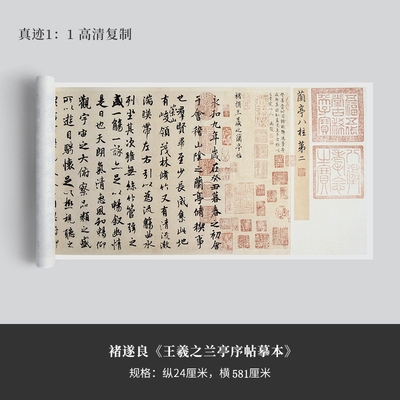 真迹1：1 高清复制
蘭亭八柱第二
褚摸王羲之蘭亭帖
永和九年歲在癸丑暮春之初會
于會稽山陰之蘭亭脩稧事
也羣賢畢至少長咸集此地
有峻領茂林脩竹又有清流激
湍暎帶左右引以為流觴曲水
列坐其次雖無絲竹管弦之
盛一觴一詠亦足以暢敘幽情
是日也天朗氣清惠風和暢仰
觀宇宙之大俯察品類之盛
所以遊目騁懷足以極視聽之
褚遂良《王羲之兰亭序帖摹本》
规格：纵24厘米，横581厘米